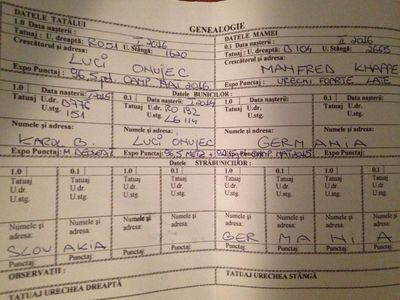 GENEALOGIE
DATELE TATĂLUI
DATELE MAMEI
1.0 Data nașterii: I 2016
0.1 Data nașterii: II 2016
Tatuaj: U. dreaptă: RO51 U. Stângă: 1620
Tatuaj: U. dreaptă: D 104 U. stângă: 2665
Crescătorul și adresa:
Crescătorul și adresa:
LUCI ONUJEC
MANFRED KNAPPE
Expo Punctaj: 96,5 pct CAMP MAI 2016
Expo Punctaj: URECHI FOARTE LATE
Datele BUNICILOR:
1.0 Data nașterii: 1/2015
0.1 Data nașterii: 1 2014
1.0 Data nașterii:
0.1 Data nașterii:
Tatuaj U.dr. D776 U.stg. 151
Tatuaj U.dr. RO 132 U.stg. LG 114
Tatuaj U.dr. U.stg.
Tatuaj U.dr. U.stg.
Numele și adresa:
Numele și adresa:
Numele și adresa:
Numele și adresa:
KAROL B.
LUCI ONUJEC
GERMANIA
Expo Punctaj:
Expo Punctaj: 96,5 METZ
Datele STRĂBUNICILOR:
1.0 0.1 1.0 0.1 1.0 0.1 1.0 0.1
Tatuaj Tatuaj Tatuaj Tatuaj Tatuaj Tatuaj Tatuaj Tatuaj
U.dr. U.dr. U.dr. U.dr. U.dr. U.dr. U.dr. U.dr.
U.stg. U.stg. U.stg. U.stg. U.stg. U.stg. U.stg. U.stg.
Numele și adresa: Numele și adresa: Numele și adresa: Numele și adresa: Numele și adresa: Numele și adresa: Numele și adresa: Numele și adresa:
SLOVAKIA
GERMANIA
Punctaj: Punctaj: Punctaj: Punctaj: Punctaj: Punctaj: Punctaj: Punctaj:
OBSERVAȚII:
TATUAJ URECHEA DREAPTĂ
TATUAJ URECHEA STÂNGĂ